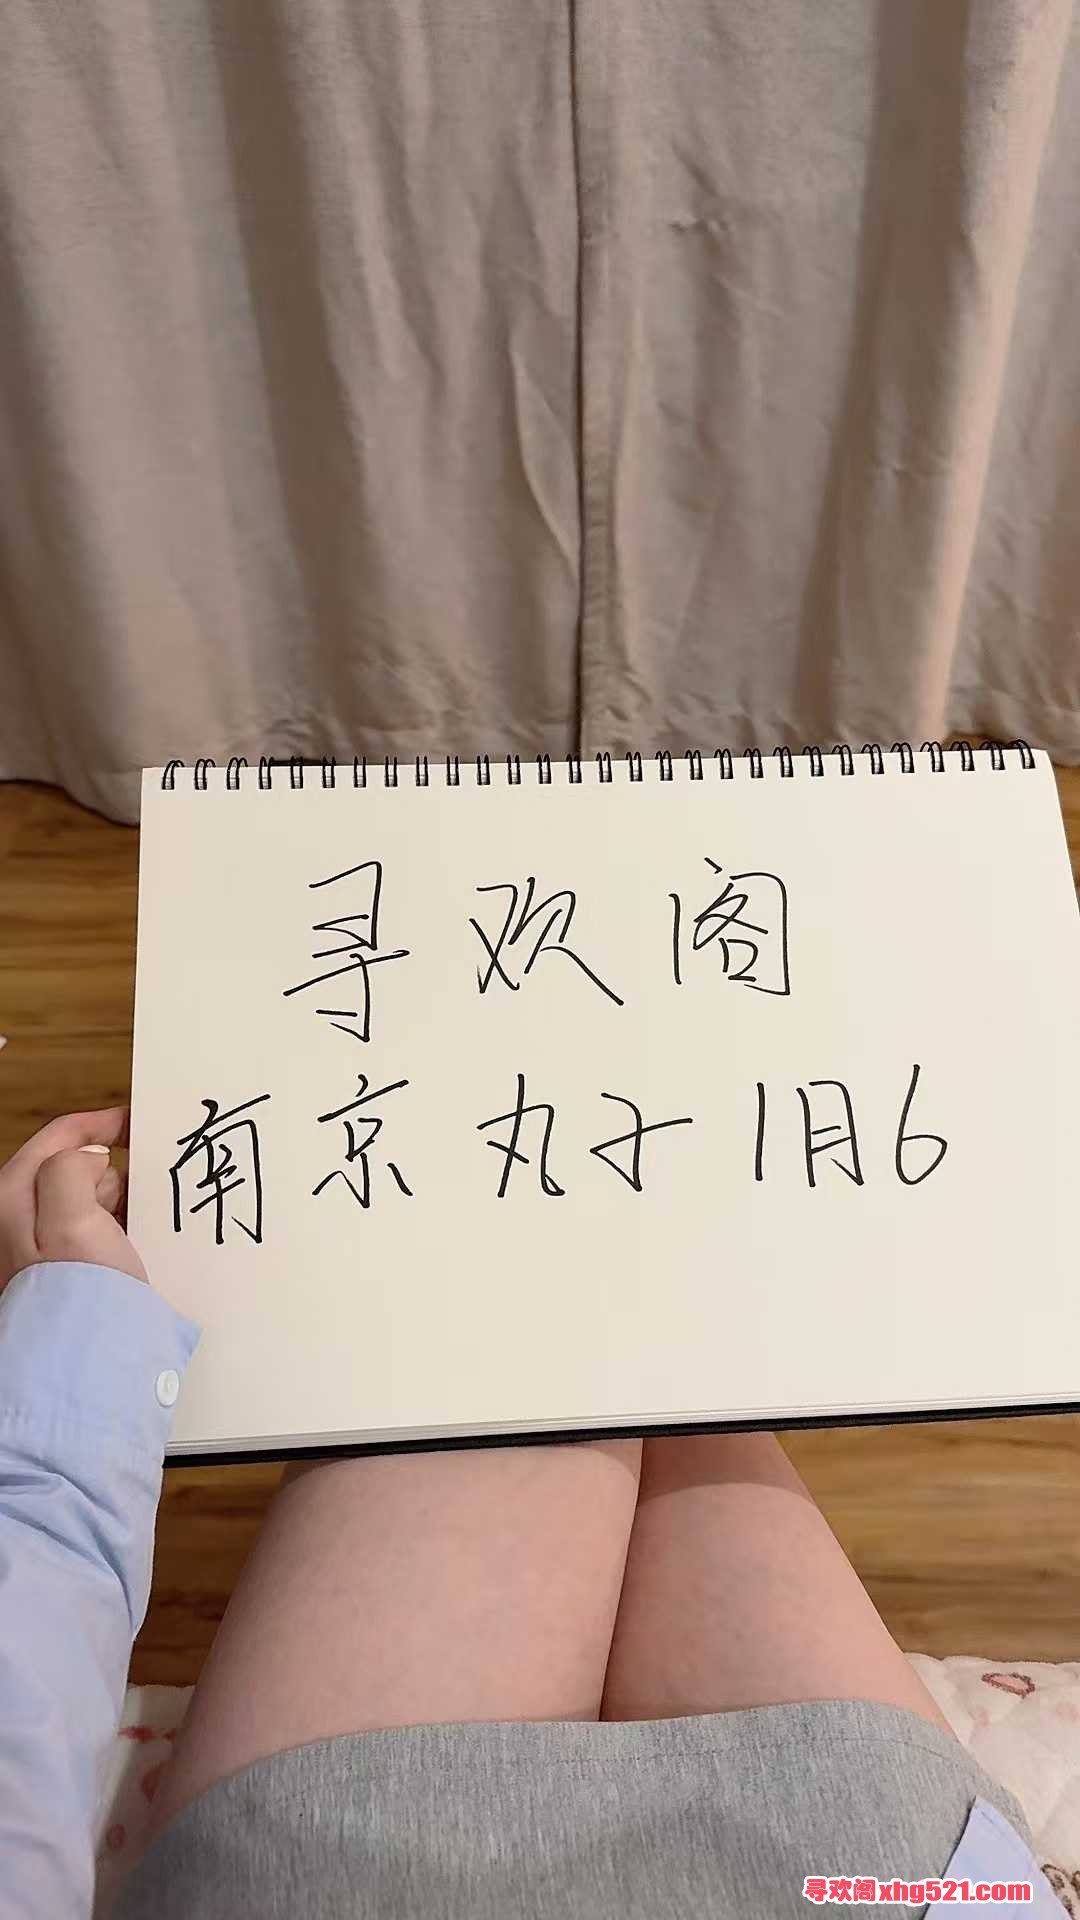 寻欢阁
南京丸子1月6
寻欢阁xhg521.com